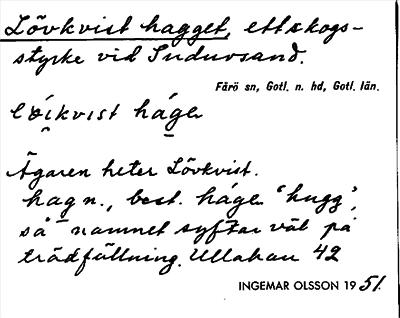 Lövkvist hagget, ett skogs-
stycke vid Sudursand.
Fårö sn, Gotl. n. hd, Gotl. län.
kvist háge
Ägaren heter Lövkvist.
hag n., best. háge 'hugg',
så namnet syftar väl på
trädfällning. Ullahau 42
INGEMAR OLSSON 1951.